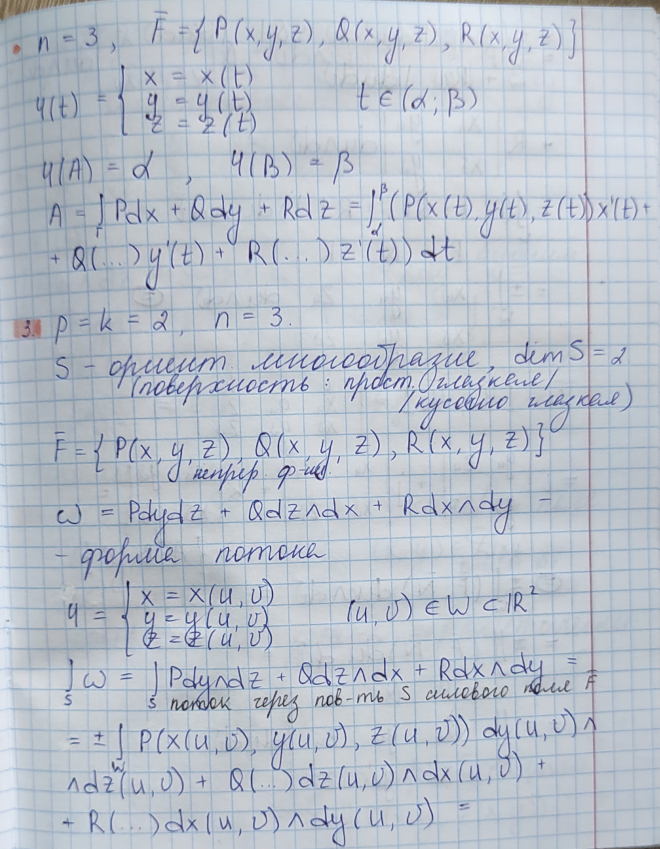 • n = 3, F̄ = { P(x, y, z), Q(x, y, z), R(x, y, z)}
φ(t) = { x = x(t)
y = y(t)
z = z(t) t ∈ (α; β)
φ(A) = α, φ(B) = β
A = ∫ Pdx + Qdy + Rdz = ∫_α^β (P(x(t), y(t), z(t)) x'(t) +
+ Q(...) y'(t) + R(...) z'(t)) dt
3. p = k = 2, n = 3.
S - ориент. многообразие, dim S = 2
(поверхность: прост. (гладкая)
(кусочно гладкая)
F̄ = { P(x, y, z), Q(x, y, z), R(x, y, z)}
непрер. ф-ии
ω = Pdydz + Qdz∧dx + Rdx∧dy -
- форма потока
φ = { x = x(u, v)
y = y(u, v)
z = z(u, v) (u, v) ∈ W ⊂ ℝ²
∫_S ω = ∫_S Pdy∧dz + Qdz∧dx + Rdx∧dy =
поток через пов-ть S силового поля F̄
= ± ∫_W P(x(u, v), y(u, v), z(u, v)) dy(u, v) ∧
∧ dz(u, v) + Q(...) dz(u, v) ∧ dx(u, v) +
+ R(...) dx(u, v) ∧ dy(u, v) =